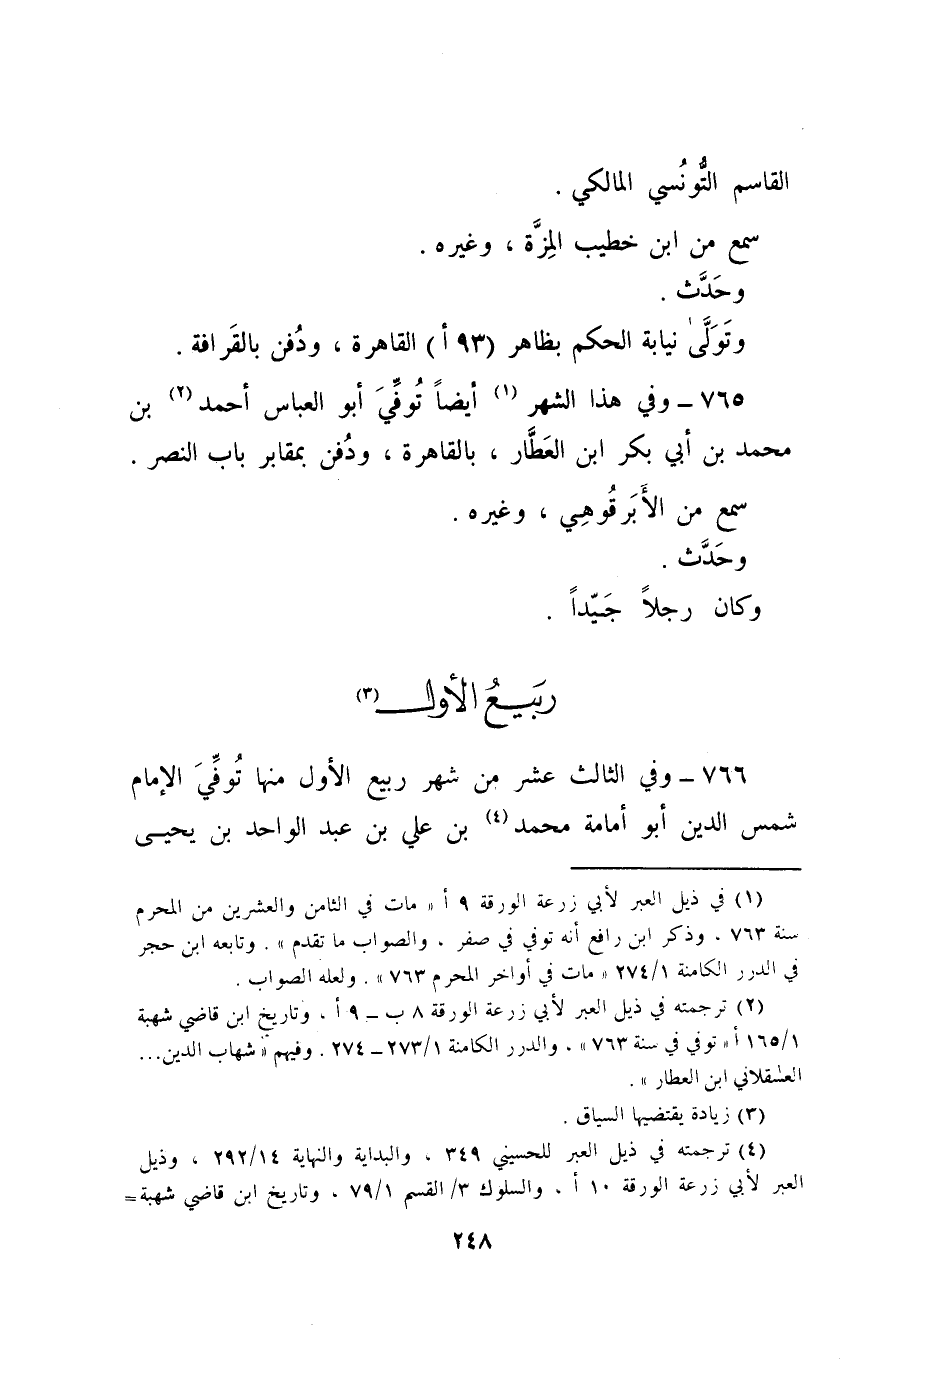 القاسم التُّونُسي المالكي .
سمع من ابن خطيب المِزَّة ، وغيره .
وحَدَّث .
وتَوَلَّىٰ نيابة الحكم بظاهر (٩٣ أ) القاهرة ، ودُفن بالقَرافة .
٧٦٥ ــ وفي هذا الشهر (١) أيضاً تُوفِّيَ أبو العباس أحمد (٢) بن
محمد بن أبي بكر ابن العَطَّار ، بالقاهرة ، ودُفن بمقابر باب النصر .
سمع من الأَبَرقُوهِي ، وغيره .
وحَدَّث .
وكان رجلاً جَيّداً .
ربَيعُ الأول (٣)
٧٦٦ ــ وفي الثالث عشر من شهر ربيع الأول منها تُوفِّيَ الإمام
شمس الدين أبو أمامة محمد (٤) بن علي بن عبد الواحد بن يحيـى
(١) في ذيل العبر لأبي زرعة الورقة ٩ أ « مات في الثامن والعشرين من المحرم
سنة ٧٦٣ . وذكر ابن رافع أنه توفي في صفر . والصواب ما تقدم » . وتابعه ابن حجر
في الدرر الكامنة ٢٧٤/١ « مات في أواخر المحرم ٧٦٣ » . ولعله الصواب .
(٢) ترجمته في ذيل العبر لأبي زرعة الورقة ٨ ب ــ ٩ أ ، وتاريخ ابن قاضي شهبة
١٦٥/١ أ « توفي في سنة ٧٦٣ » . والدرر الكامنة ٢٧٣/١ ــ ٢٧٤ . وفيهم « شهاب الدين...
العسقلاني ابن العطار » .
(٣) زيادة يقتضيها السياق .
(٤) ترجمته في ذيل العبر للحسيني ٣٤٩ ، والبداية والنهاية ٢٩٢/١٤ ، وذيل
العبر لأبي زرعة الورقة ١٠ أ ، والسلوك ٣/ القسم ٧٩/١ ، وتاريخ ابن قاضي شهبة =
٢٤٨